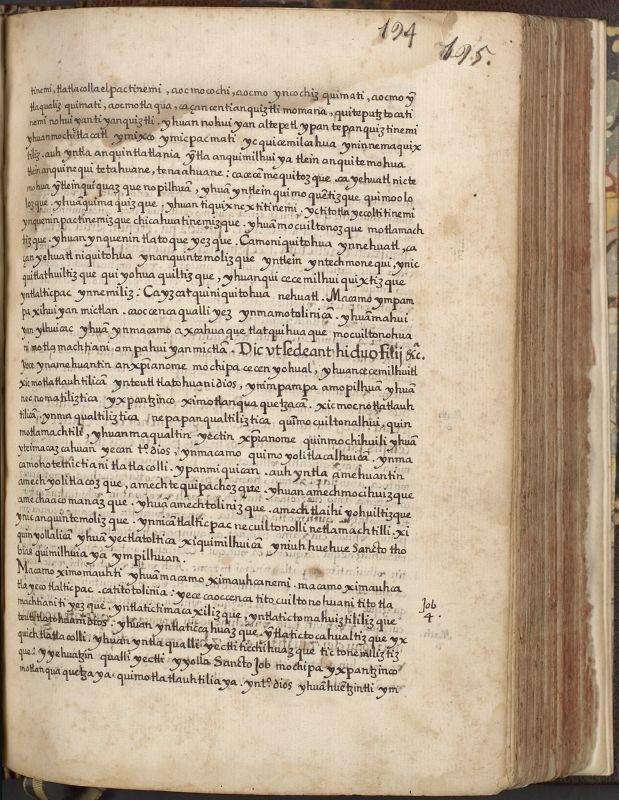 194
195.
tinemi, tlatlacolla elpactinemi, aocmo cochi, aocmo yncochiz quimati, aocmo ỹ
tlaqualiz quimati, aocmo tlaqua, ca çan centianquiztli momana, quiteputztocati
nemi nohuiyan tianquiztli. yhuan nohuiyan altepetl ypan tepanquiztinemi
yhuan mochi tlacatl ymixco ymicpac mati yc quicemilcahua yninnemaquix
tiliz. auh yntla anquintlatlania ỹtla anquimilhui ya tlein anquitemohua
tlein anquinequi tetahuane, tenanhuane: ca cecẽmequitozque. ca yehuatl nicte
mohua ỹtlein quiquazque nopilhuã, yhuã yntlein quimoquẽtizque quimoolo
lozque. yhuã quimaquizque. yhuan tiquixnextitinemi, yctitotlayecoltitinemi
ynquenin pactinemizque chicahuatinemizque. yhuã mocuiltonozque motlamach
tizque. yhuan ynquenin tlatoque yezque. Camoniquitohua ynnehuatl, ca
çan yehuatl niquitohua ynanquintemolizque yntlein yntechmonequi, ynic
quitlathuiltizque quiyohuaquiltizque, yhuan quicecemilhuiquixtizque
yntlalticpac ynnemiliz: Ca yzcatqui niquitohua nehuatl. Macamo ympam
pa xihuiyan mictlan. caoccenca qualli yez ynmamotolinicã. yhuã mahui
yan ylhuicac yhuã ynmacamo axcahuaque tlatquihuaque mocuiltonohua
nimotlamachtiani ampahuiyan mictlã. Dic vt sedeant hi duo filij &c.
Yece ynamehuantin anxp̃ianome mochipa cecenyohual, yhuan cecemilhuitl
xicmotlatlauhtilicã ynteutl tlatohuani dios, ynimpampa amopilhuã yhuã
nocnomatiliztica yxpantzinco ximotlanquaquetzacã. xicmocnotlatlauh
tilicã, ynma qualtiliztica nepapan qualtiliztica quĩmocuiltonalhui, quin
motlamachtili, yhuan ma qualtin yectin xp̃ianome quinmochihuili yhuã
yteimacazcahuan yecan t.º dios, ynmacamo quimoyolitlacalhuicã. ynma
camoho tetlictiani tlatlacolli. ypan miquican. auh yntla amehuantin
amechyolitlacozque, amechtequipachozque. yhuan amechmocihuizque
amechaacomanazque. yhuã amechtolinizque. amechtlaihiyohuiltizque
ynic anquintemolizque. ynnicã tlalticpac necuiltonolli netlamachtilli. xi
quinyollalicã yhuan yectlatoltica xiquimilhuicã yniuh huehue Sancto tho
bias quimilhuiaya ympilhuan.
Macamo ximomauhti yhuã macamo ximauhcanemi. macamo ximauhca
tlayeco tlalticpac. catitotolinia: yece caoccenca titocuiltonohuani titotla
machtiani tiyezque, yntlatictimacaxilizque, yntlatictomahuiztililizque
teutl tlatohuani dios. yhuan yntlaticcahuazque. ỹtlatictocahualtizque yx
quich tlatlacolli. yhuan yntla qualli yectli ticchihuazque tictonemiliztiz
que: yyehuatzin qualli yectli yyollo Sancto Job mochipa yxpantzinco
motlanquaquetzaya quimotlatlauhtiliaya. ynt.º dios yhuã huẽtzintli ym
Job
4.